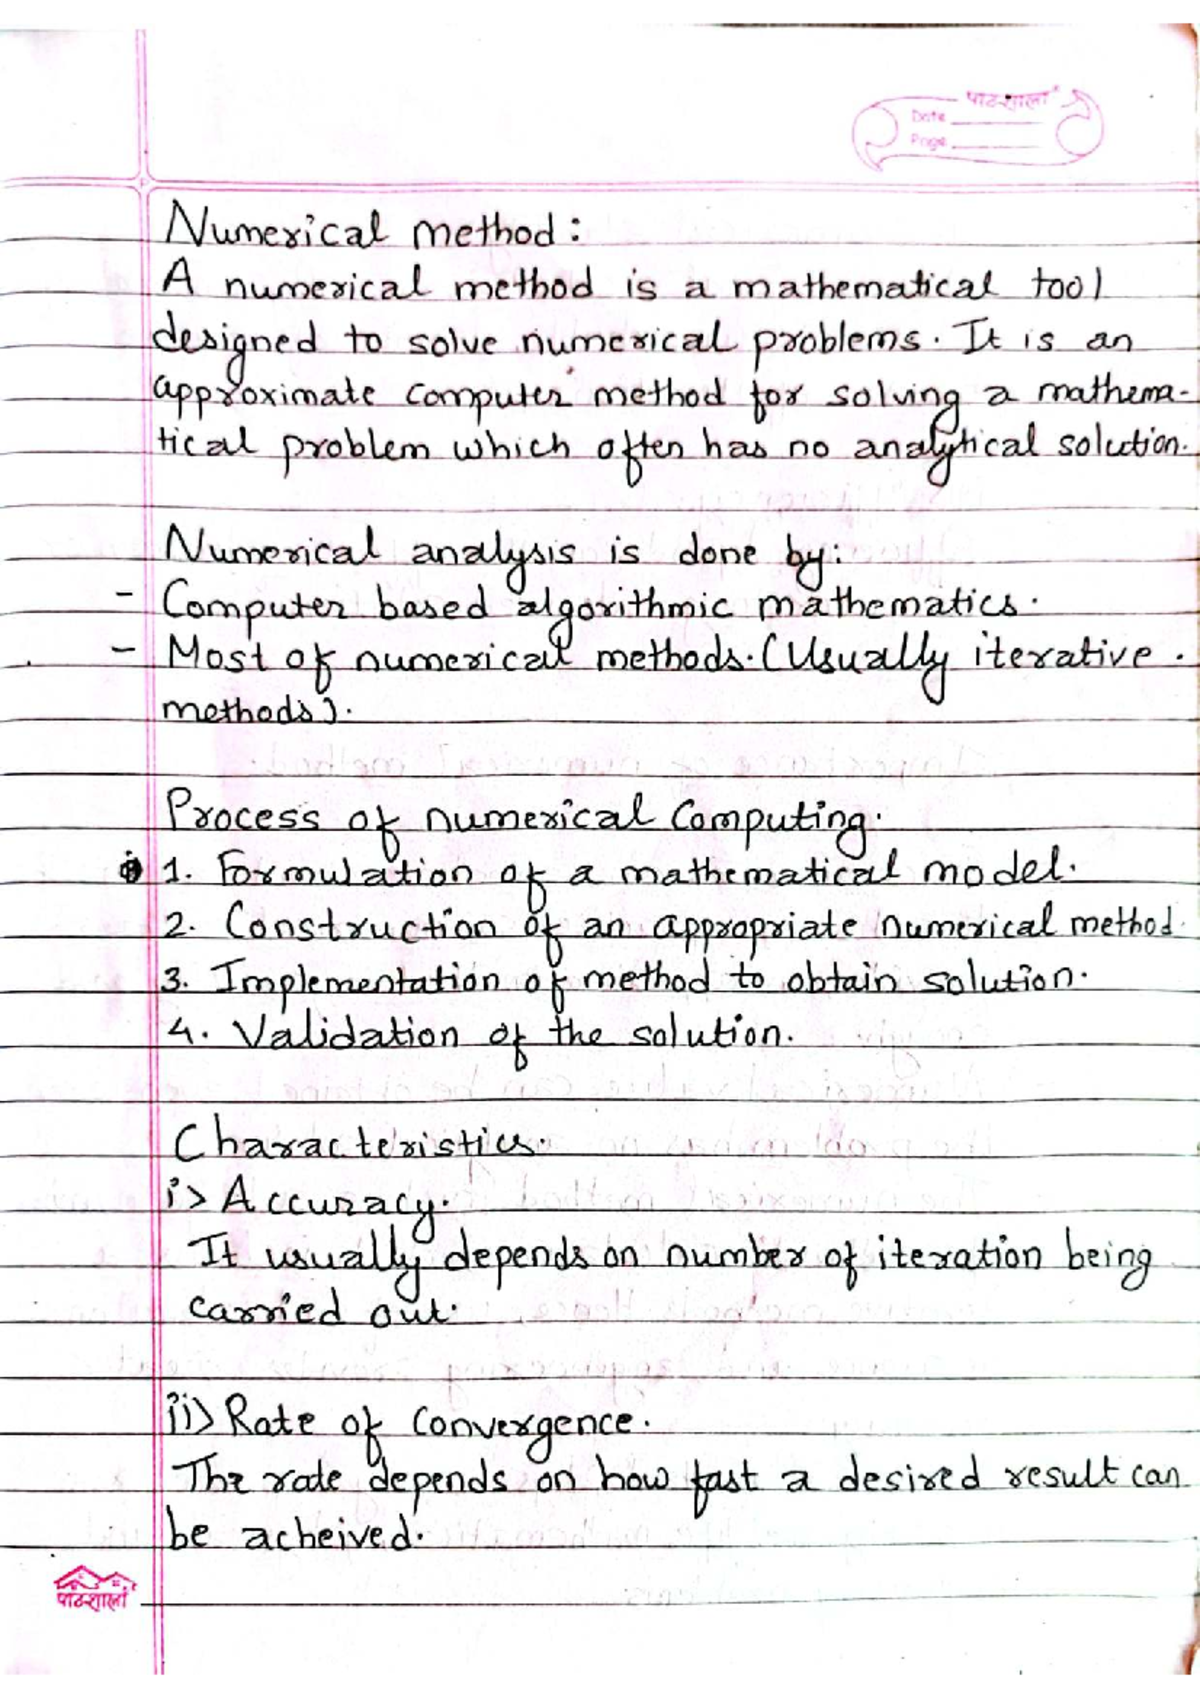 पाठशाला
Date
Page
Numerical method:
A numerical method is a mathematical tool
designed to solve numerical problems. It is an
approximate computer method for solving a mathema-
tical problem which often has no analytical solution.
Numerical analysis is done by:
- Computer based algorithmic mathematics.
- Most of numerical methods. (Usually iterative
methods).
Process of numerical Computing.
1. Formulation of a mathematical model.
2. Construction of an appropriate numerical method.
3. Implementation of method to obtain solution.
4. Validation of the solution.
Characteristics.
i> Accuracy.
It usually depends on number of iteration being
carried out.
ii> Rate of convergence.
The rate depends on how fast a desired result can
be acheived.
पाठशाला